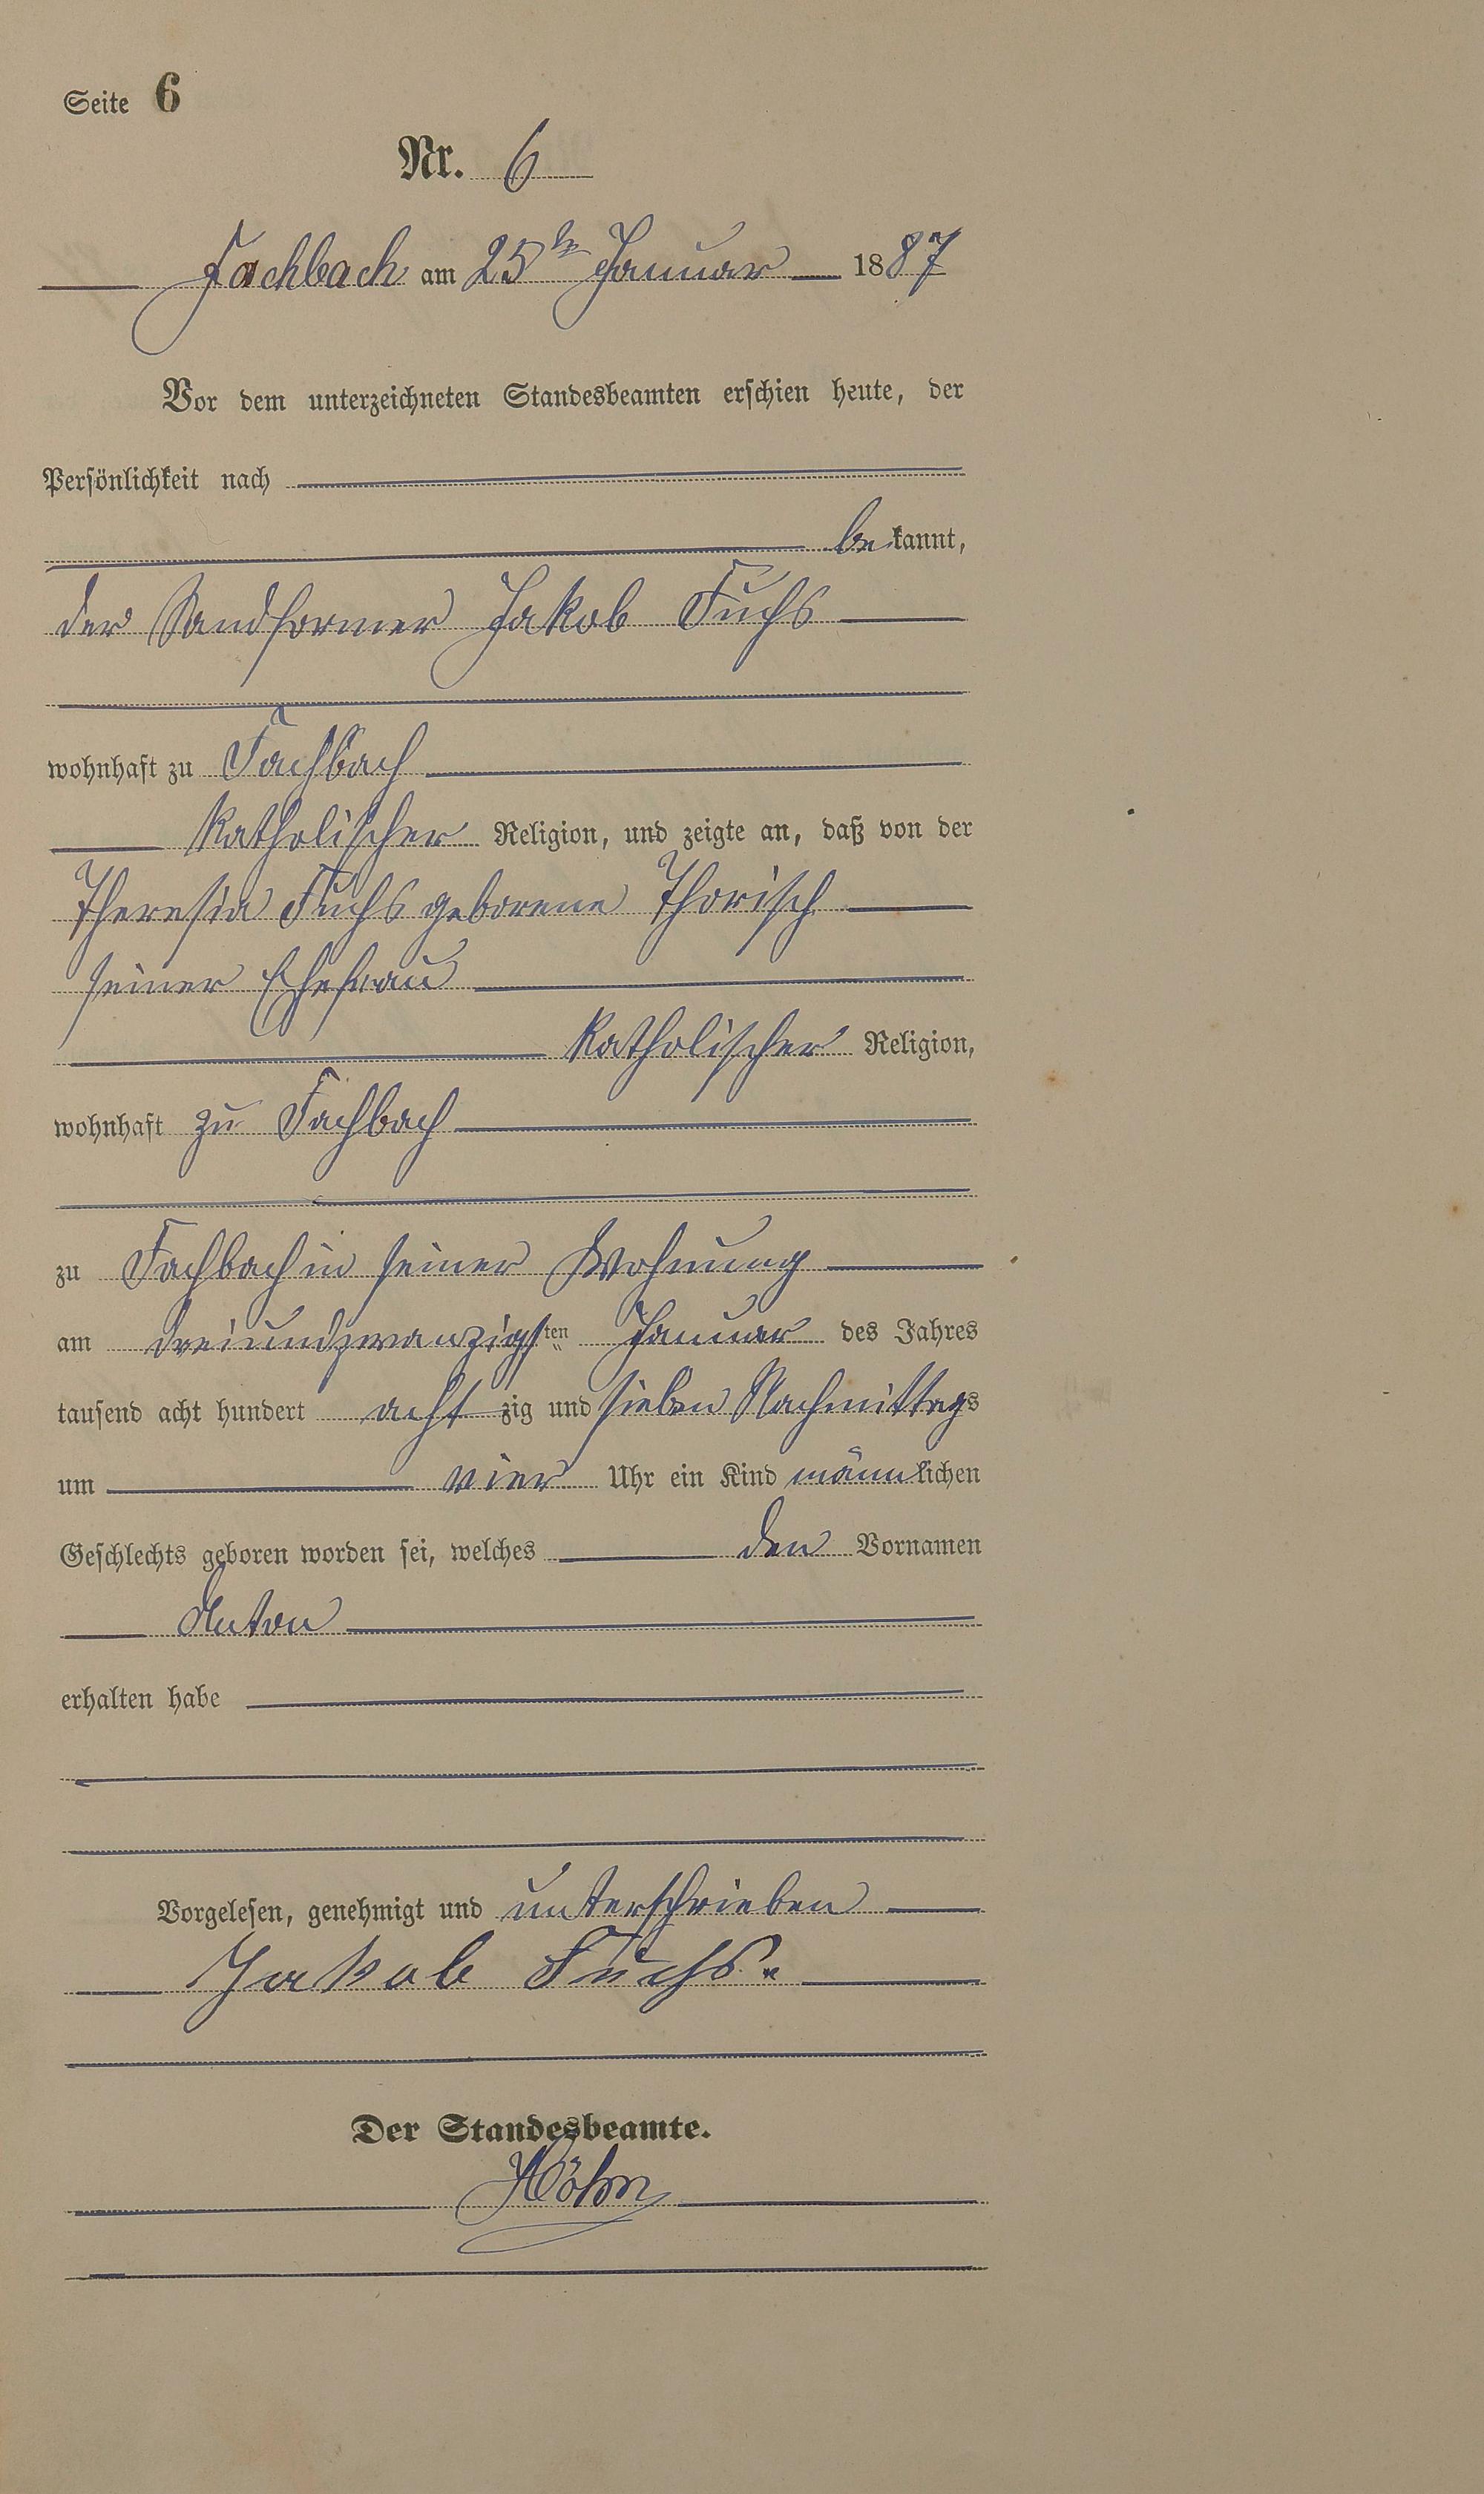 Seite 6
Nr. 6
Fachbach am 25ten Januar 1887
Vor dem unterzeichneten Standesbeamten erschien heute, der
Persönlichkeit nach
bekannt,
der Sandformer Jakob Fuchs
wohnhaft zu Fachbach
katholischer Religion, und zeigte an, daß von der
Theresia Fuchs geborene Thorisch
seiner Ehefrau
katholischer Religion,
wohnhaft zu Fachbach
zu Fachbach in seiner Wohnung
am dreiundzwanzigsten Januar des Jahres
tausend acht hundert achtzig und sieben Nachmittags
um vier Uhr ein Kind männlichen
Geschlechts geboren worden sei, welches den Vornamen
Anton
erhalten habe
Vorgelesen, genehmigt und unterschrieben
Jakob Fuchs.
Der Standesbeamte.
Höhn